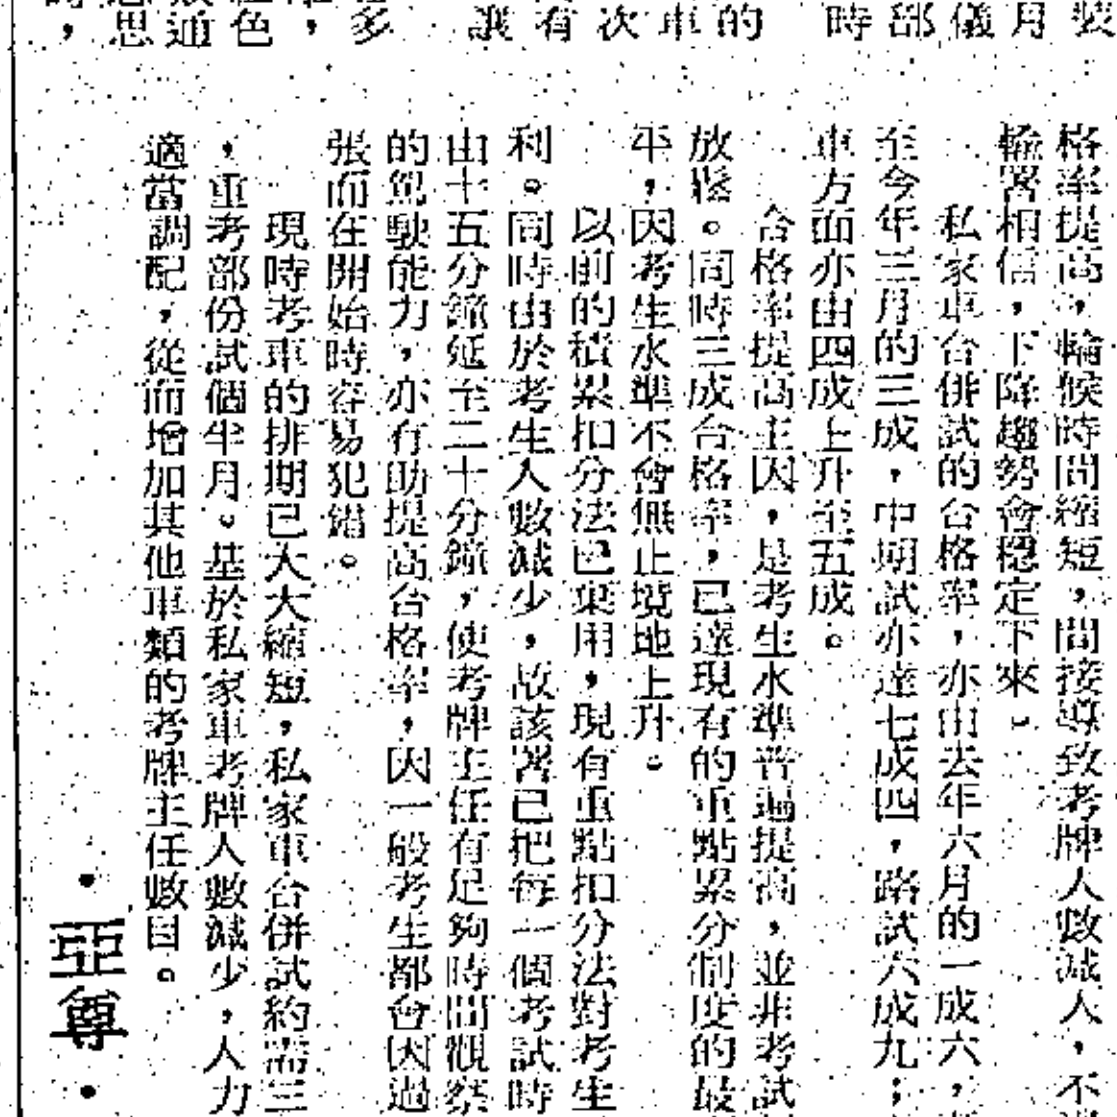 格率提高，輪候時間縮短，間接導致考牌人數減人，不
輸署相信，下降趨勢會穩定下來。
私家車合併試的合格率，亦由去年六月的一成六，
至今年三月的三成，中期試亦達七成四，路試六成九；
車方面亦由四成上升至五成。
合格率提高主因，是考生水準普遍提高，並非考試
放鬆。同時三成合格率，已達現有的重點累分制度的最
平，因考生水準不會無止境地上升。
以前的積累扣分法已棄用，現有重點扣分法對考生
利。同時由於考生人數減少，故該署已把每一個考試時
由十五分鐘延至二十分鐘，使考牌主任有足夠時間觀察
的駕駛能力，亦有助提高合格率，因一般考生都會因過
張而在開始時容易犯錯。
現時考車的排期已大大縮短，私家車合併試約需三
，重考部份試個半月。基於私家車考牌人數減少，人力
適當調配，從而增加其他車類的考牌主任數目。
・亞尊・